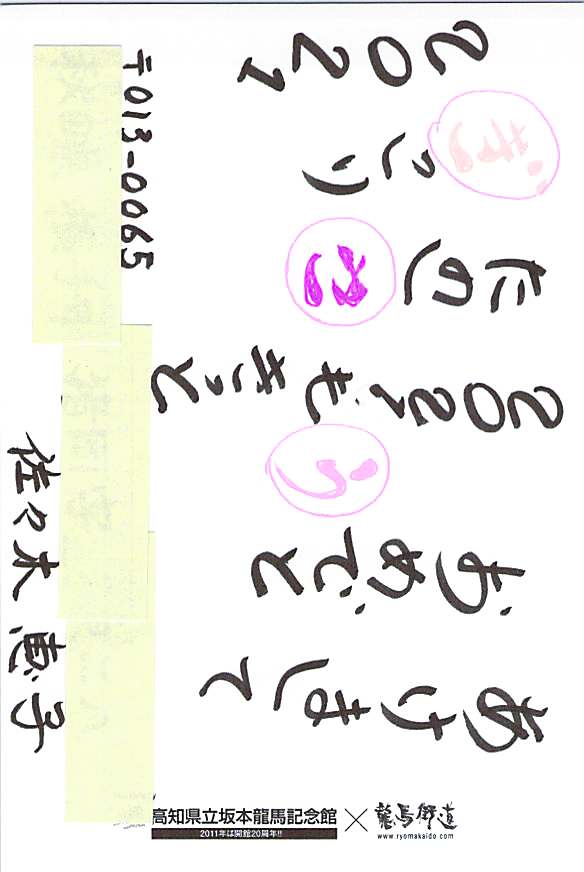 あけまして
おめでとう
2011もきっと
たのしさ
ぎっしり
2011
〒013-0065
佐々木 恵子
高知県立坂本龍馬記念館 × 龍馬街道
2011年は開館20周年!!
www.ryomakaido.com